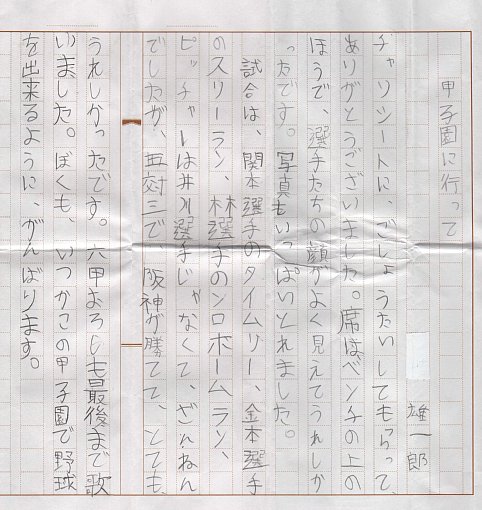 甲子園に行って
雄一郎
チャリシートに、ごしょうたいしてもらって、
ありがとうございました。席はベンチの上の
ほうで、選手たちの顔がよく見えてうれしか
ったです。写真もいっぱいとれました。
試合は、関本選手のタイムリー、金本選手
のスリーラン、林選手のソロホームラン、
ピッチャーは井川選手じゃなくて、ざんねん
でしたが、五対三で、阪神が勝てて、とても
うれしかったです。六甲おろしも最後まで歌
いました。ぼくも、いつかこの甲子園で野球
を出来るように、がんばります。